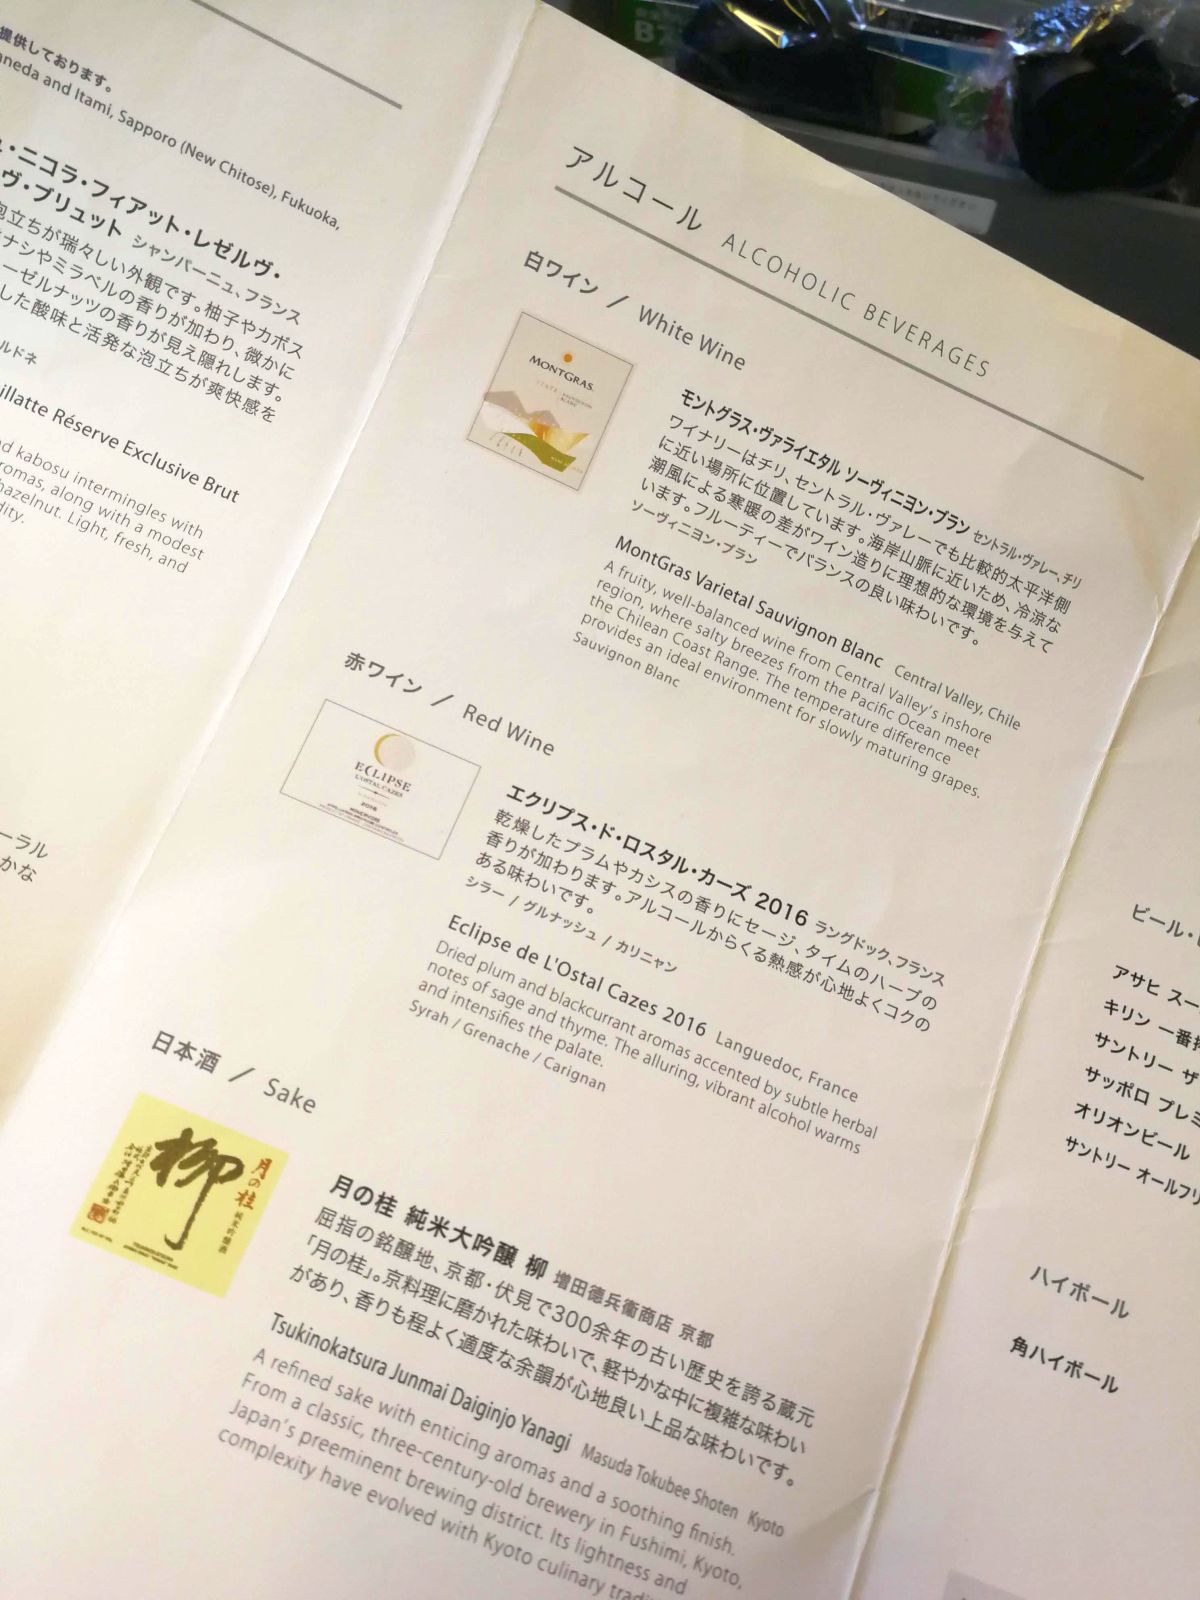 提供しております。
aneda and Itami, Sapporo (New Chitose), Fukuoka,
・ニコラ・フィアット・レゼルヴ・
ヴ・ブリュット シャンパーニュ、フランス
泡立ちが瑞々しい外観です。柚子やカボス
ナシやミラベルの香りが加わり、微かに
ーゼルナッツの香りが見え隠れします。
した酸味と活発な泡立ちが爽快感を
ルドネ
illatte Réserve Exclusive Brut
nd kabosu intermingles with
romas, along with a modest
hazelnut. Light, fresh, and
dity.
ーラル
かな
アルコール ALCOHOLIC BEVERAGES
白ワイン / White Wine
MONTGRAS
モントグラス・ヴァライエタル ソーヴィニヨン・ブラン セントラル・ヴァレー、チリ
ワイナリーはチリ、セントラル・ヴァレーでも比較的太平洋側
に近い場所に位置しています。海岸山脈に近いため、冷涼な
潮風による寒暖の差がワイン造りに理想的な環境を与えて
います。フルーティーでバランスの良い味わいです。
ソーヴィニヨン・ブラン
MontGras Varietal Sauvignon Blanc Central Valley, Chile
A fruity, well-balanced wine from Central Valley's inshore
region, where salty breezes from the Pacific Ocean meet
the Chilean Coast Range. The temperature difference
provides an ideal environment for slowly maturing grapes.
Sauvignon Blanc
赤ワイン / Red Wine
ECLIPSE
L'OSTAL CAZES
2016
エクリプス・ド・ロスタル・カーズ 2016 ラングドック、フランス
乾燥したプラムやカシスの香りにセージ、タイムのハーブの
香りが加わります。アルコールからくる熱感が心地よくコクの
ある味わいです。
シラー / グルナッシュ / カリニャン
Eclipse de L'Ostal Cazes 2016 Languedoc, France
Dried plum and blackcurrant aromas accented by subtle herbal
notes of sage and thyme. The alluring, vibrant alcohol warms
and intensifies the palate.
Syrah / Grenache / Carignan
日本酒 / Sake
月の桂
柳
純米吟醸酒
月の桂 純米大吟醸 柳 増田德兵衞商店 京都
屈指の銘醸地、京都・伏見で300余年の古い歴史を誇る蔵元
「月の桂」。京料理に磨かれた味わいで、軽やかな中に複雑な味わい
があり、香りも程よく適度な余韻が心地良い上品な味わいです。
Tsukinokatsura Junmai Daiginjo Yanagi Masuda Tokubee Shoten Kyoto
A refined sake with enticing aromas and a soothing finish.
From a classic, three-century-old brewery in Fushimi, Kyoto,
Japan's preeminent brewing district. Its lightness and
complexity have evolved with Kyoto culinary tradi
ビール・
アサヒ スー
キリン 一番搾
サントリー ザ
サッポロ プレミ
オリオンビール
サントリー オールフリ
ハイボール
角ハイボール